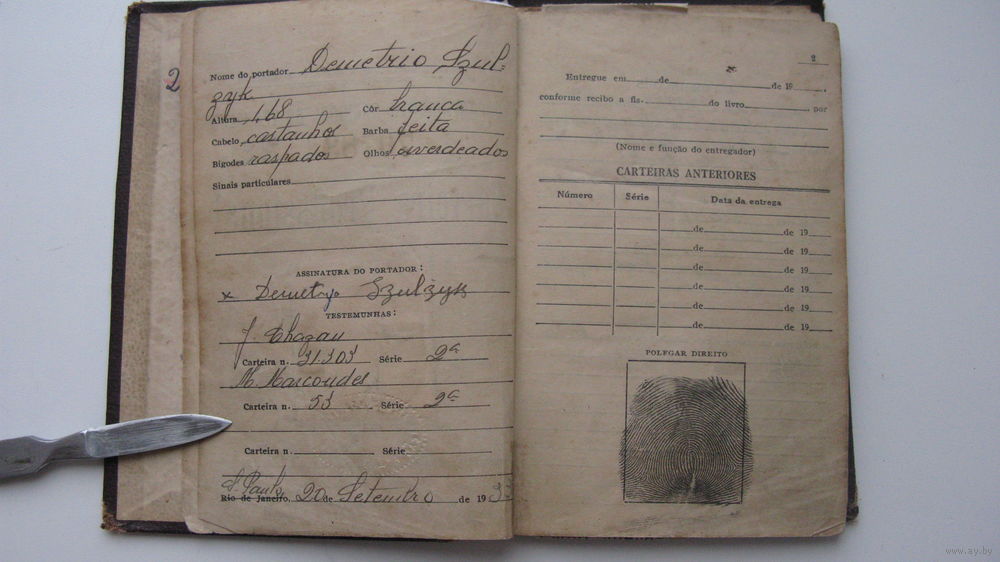 2
Nome do portador Demetrio Szul-
zyk
Altura 1,68 Côr branca
Cabelo castanhos Barba feita
Bigodes raspados Olhos esverdeados
Sinais particulares
ASSINATURA DO PORTADOR:
x Demetryo Szulzyk
TESTEMUNHAS:
J. Chazan
Carteira n. 31303 Série 2ª
M. Marcondes
Carteira n. 53 Série 2ª
Carteira n. Série
S. Paulo
Rio de Janeiro, 20 de Setembro de 193
2
Entregue em de de 19 ,
conforme recibo a fls. do livro , por
(Nome e função do entregador)
CARTEIRAS ANTERIORES
Número Série Data da entrega
de de 19
de de 19
de de 19
de de 19
de de 19
de de 19
POLEGAR DIREITO
www.ay.by